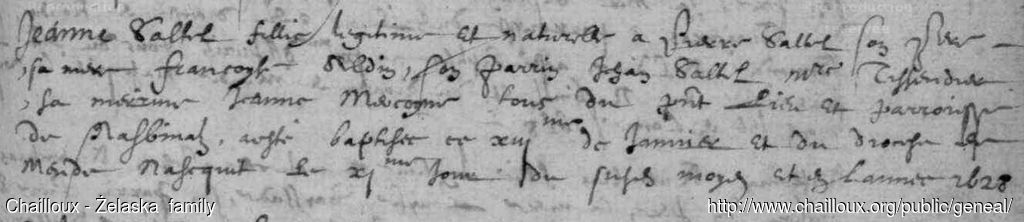 Jeanne Saltel fillie legitime et naturelle a Pierre Saltel son pere
sa mere Francoyse Seldin, son parrin Jehan Saltel mre Tissendier
sa meirine Jeanne tous du pnt Lieu et parroisse
de Nasbinals, a esté baptisée ce XVIIme de Janvier et du diocese de
Mende Nasequit le XIme Jour du susd moys et en l'annee 1628
Chailloux - Żelaska family
http://www.chailloux.org/public/geneal/